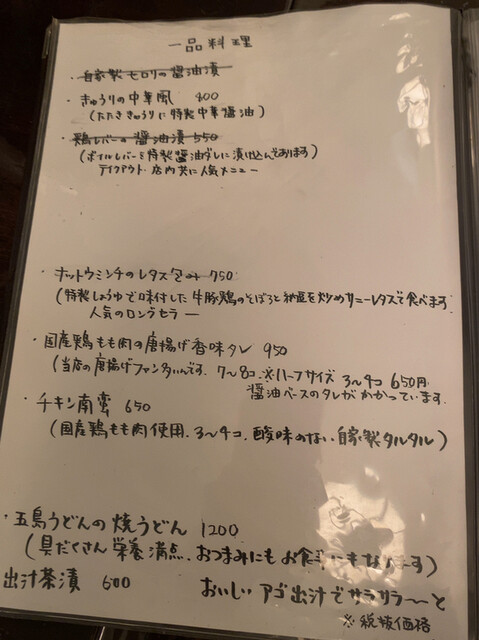 一品料理
・自家製セロリの醤油漬
・きゅうりの中華風 400
(たたききゅうりに特製中華醤油)
・鶏レバーの醤油漬 550
(ボイルレバーを特製醤油ダレに漬け込んであります)
テイクアウト店内共に人気メニュー
・ホットウミンチのレタス包み 750
(特製しょうゆで味付した牛豚鶏のそぼろと納豆を炒めサニーレタスで食べます
人気のロングセラー
・国産鶏もも肉の唐揚げ香味タレ 950
(当店の唐揚げファン多いんです. 7〜8コ ※ハーフサイズ 3〜4コ 650円
醤油ベースのタレがかかっています
・チキン南蛮 650
(国産鶏もも肉使用. 3〜4コ. 酸味のない自家製タルタル)
・五島うどんの焼うどん 1200
(具だくさん栄養満点. おつまみにもお食事にもなります)
出汁茶漬 600 おいしいアゴ出汁でサラサラ〜と
※税抜価格